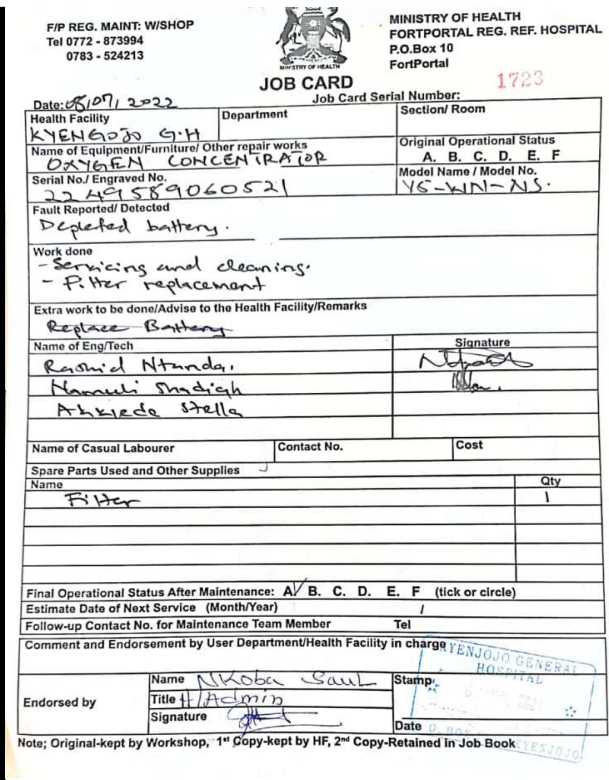 F/P REG. MAINT: W/SHOP
Tel 0772 - 873994
0783 - 524213
MINISTRY OF HEALTH
MINISTRY OF HEALTH
FORTPORTAL REG. REF. HOSPITAL
P.O.Box 10
FortPortal
JOB CARD
Job Card Serial Number: 1723
Date: 08/07/2022
Health Facility
Department
Section/ Room
KYENGOJO G.H
Name of Equipment/Furniture/ Other repair works
OXYGEN CONCENTRATOR
Original Operational Status
A. B. C. D. E. F
Serial No./ Engraved No.
2249589060521
Model Name / Model No.
Y5-WN-NS.
Fault Reported/ Detected
Depleted battery.
Work done
- Servicing and cleaning.
- Filter replacement
Extra work to be done/Advise to the Health Facility/Remarks
Replace Battery
Name of Eng/Tech
Signature
Rashid Ntanda,
Namuli Shadiah
Stella
Name of Casual Labourer
Contact No.
Cost
Spare Parts Used and Other Supplies
Name
Qty
Filter
1
Final Operational Status After Maintenance: A B. C. D. E. F (tick or circle)
Estimate Date of Next Service (Month/Year) /
Follow-up Contact No. for Maintenance Team Member Tel
Comment and Endorsement by User Department/Health Facility in charge
Endorsed by
Name Nkoba Saul
Title H/Admin
Signature
Stamp
KYENJOJO GENERAL
HOSPITAL
Date
KYENJOJO
Note; Original-kept by Workshop, 1st Copy-kept by HF, 2nd Copy-Retained in Job Book